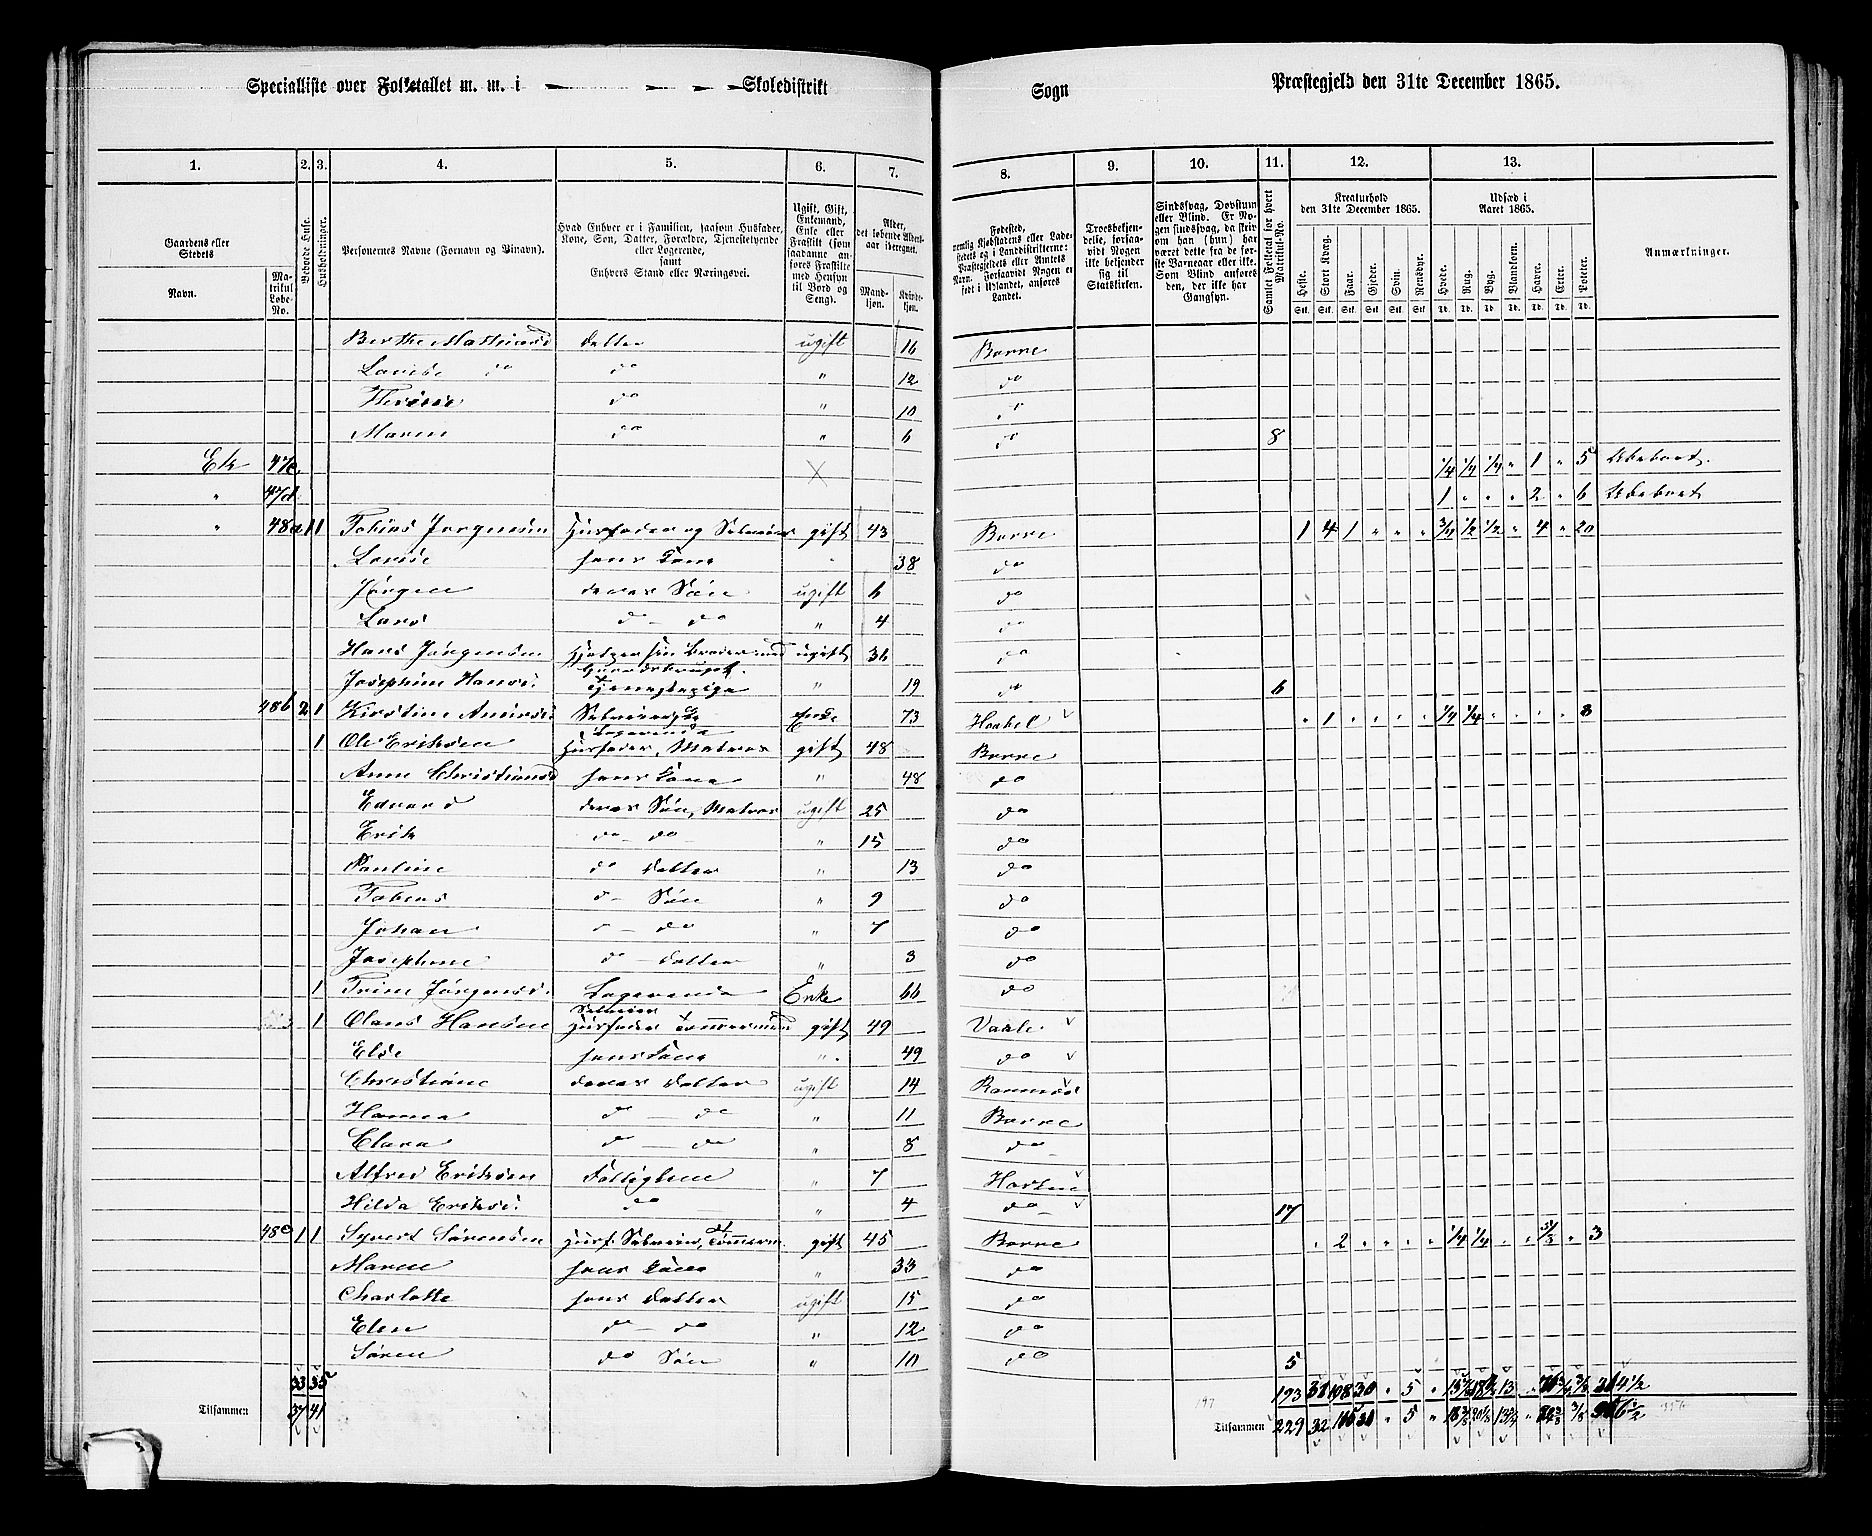 Specialliste over Folketallet m. m. i Skoledistrikt Sogn Præstegjeld den 31te December 1865.
1. 2. 3. 4. 5. 6. 7. 8. 9. 10. 11. 12. 13.
Gaardens eller Stedets Navn. Matrikul Løbe-No. Beboede Huse. Husholdninger. Personernes Navne (Fornavn og Tilnavn). Hvad Enhver er i Familien, saasom Husfader, Kone, Søn, Datter, Forældre, Tjenestetyende eller Logerende, samt Enhvers Stand eller Næringsvei. Ugift, Gift, Enkemand, Enke eller Fraskilt (som saadanne anføres Fraskilte med Hensyn til Bord og Seng). Alder, det løbende Alders-aar iberegnet. Mandkjøn. Kvindekjøn.
Fødested, Troesbekjendelse, forsaavidt Nogen ikke bekjender sig til Statskirken. Sindssvag, Døvstum eller Blind. Gamlet Folketal for hvert Matrikul-No. Kreaturhold den 31te December 1865. Udsæd i Aaret 1865. Anmærkninger.
Heste. Stort Kvæg. Faar. Gjeder. Sviin. Rensdyr. Hvede. Rug. Byg. Blandkorn. Havre. Erter. Poteter.
Stk. Stk. Stk. Stk. Stk. Stk. Td. Td. Td. Td. Td. Td. Td.
Berthe datter ugift 16 Borre
Lovise do do " 12 do
Therese do " 10 do
Maren do " 6 do 8
Ek 47c 1/4 1/4 1/4 " 1 " 5
" 47d 1 " " " 2 " 6 Udebort
" 48a 1 1 Tobias Jørgensen Husfader og Selveier gift 43 Borre 1 4 1 " " " 3/4 1/2 1/2 " 4 " 20
Lovise hans Kone 38 do
Jørgen deres Søn ugift 6 do
Lars d - do " 4 do
Hans Jørgensen Hjelper sin Broder med Gaardsbruget ugift 36 do
Josephine Hansd. Tjenestepige " 19 do 6
48b 2 1 Kirstine Andersd. Enke 73 " 1 " " " " 1/4 1/4 " " " " 8
1 Ole Eriksen Logerende Husfader, Matros gift 48 Borre
Anne Christiansd hans Kone " 48 do
Edvard deres Søn, Matros ugift 25 do
Erik do do " 15 do
Pauline do datter " 13 do
Tobias d - Søn " 9 do
Johan d - do " 7 do
Josephine d - datter " 3 do
1 Trine Jørgensd. Logerende Enke 66 do
1 Olaus Hansen Selveier Husfader Tømmermand gift 49 Vaale
Else hans Kone " 49 do
Christiane deres datter ugift 14 Ramnæs
Hanna d - do " 11 Borre
Clara d - do " 8 do
Alfred Eriksen Fattiglem " 7 Horten
Hilda Eriksd. do " 4 do 17
48c 1 1 Syvert Sørensen Husf. Selveier, Tømmerm. gift 45 Borre " 2 " " " " 1/4 1/4 " " " 3
Maren hans Kone " 33 do
Charlotte hans datter ugift 15 do
Elen d - do " 12 do
Søren do Søn " 10 do 5
33 35 193
Tilsammen 37 41 Tilsammen 229 32